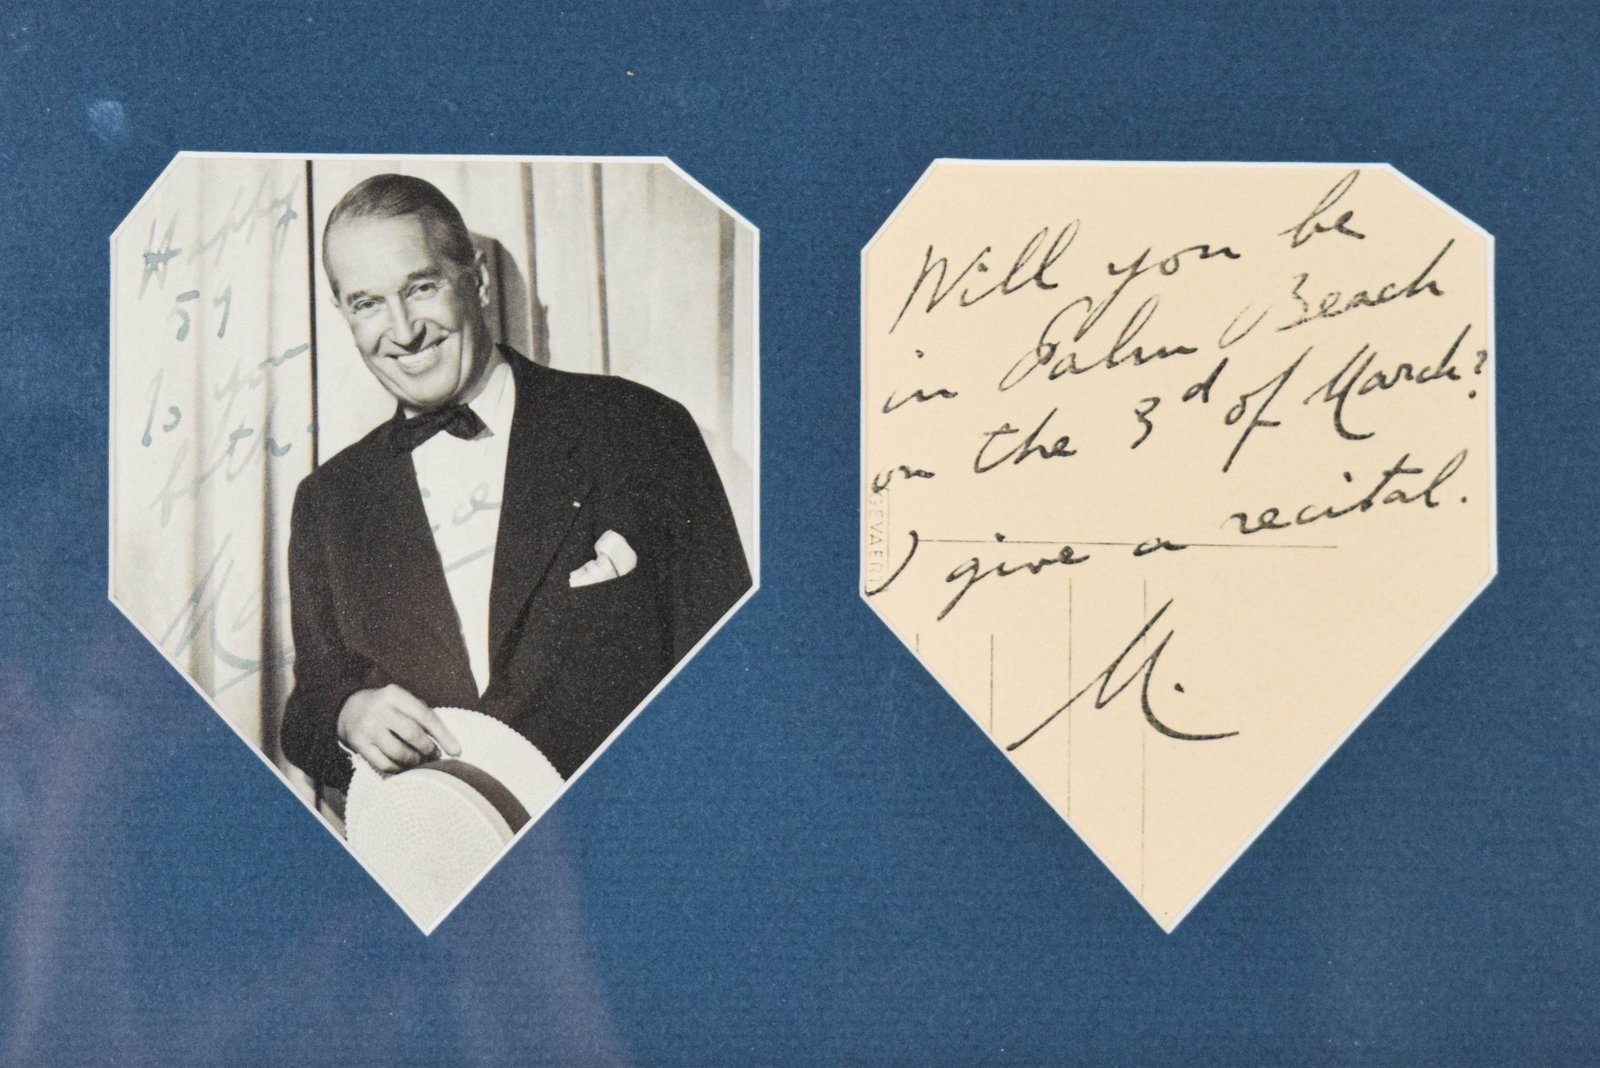 Happy
59
to you
both
Will you be
in Palm Beach
on the 3d of March?
I give a recital.
M.
GEVAERT